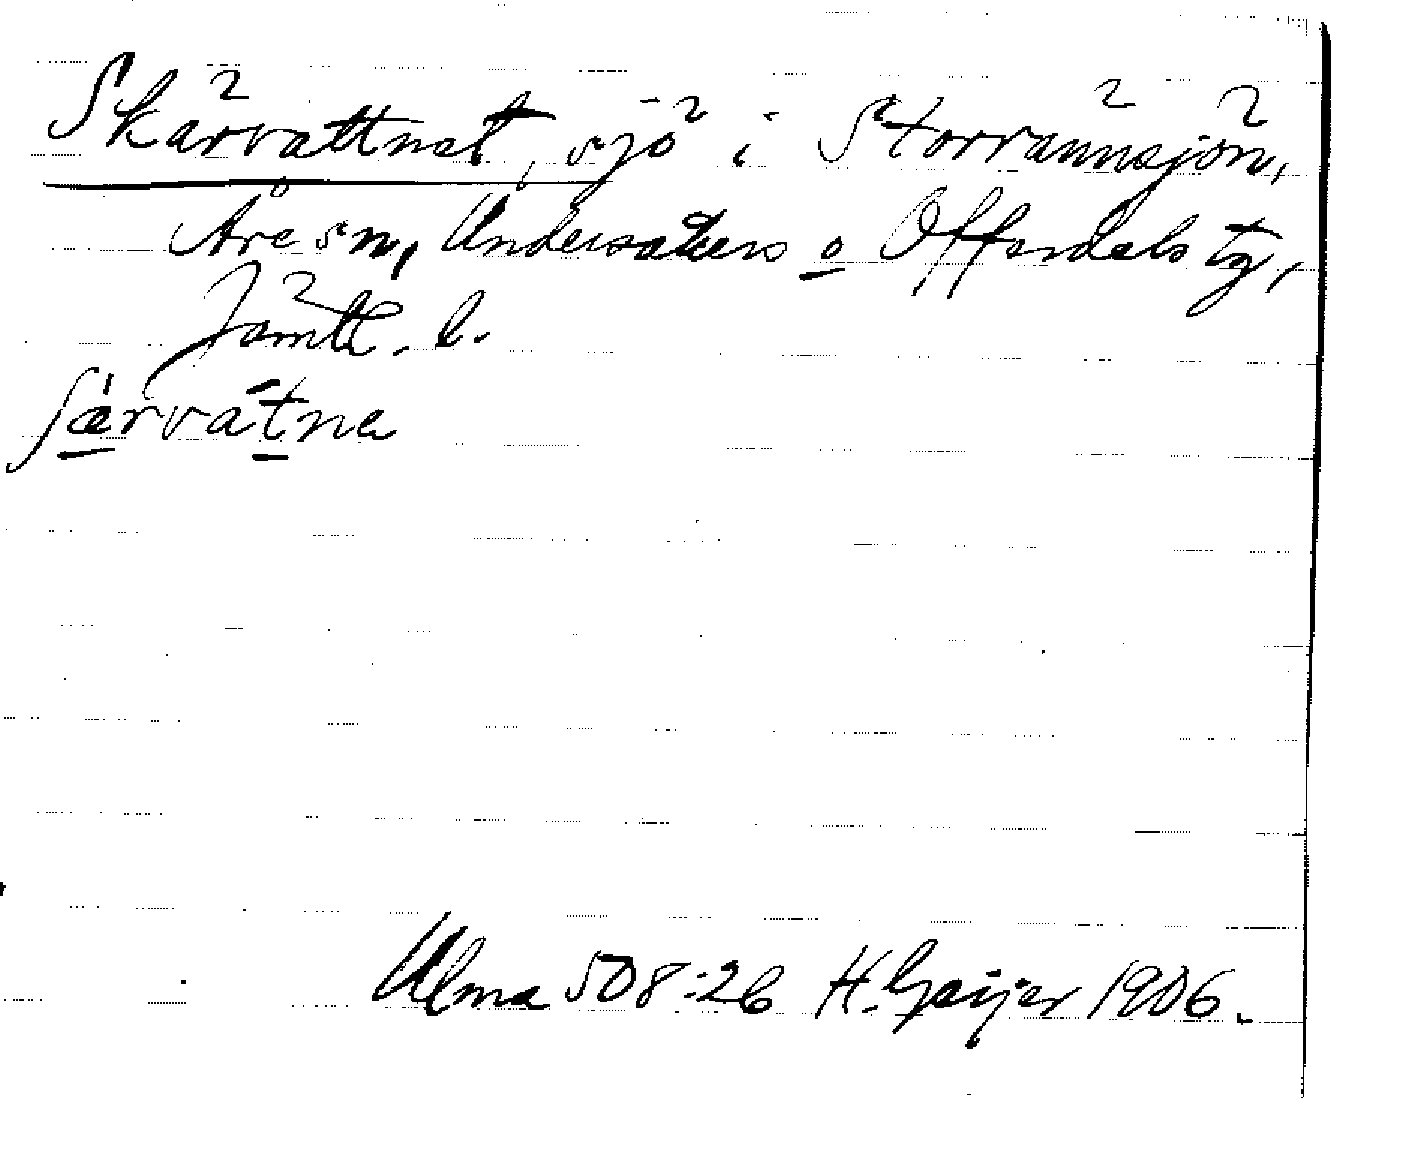 Skärvattnet, sjö i Storrännsjön,
Åre sn, Undersåkers o Offerdals tg,
Jämtl. l.
ʃærvatne
Ulma 508:26 H. Geijer 1906.